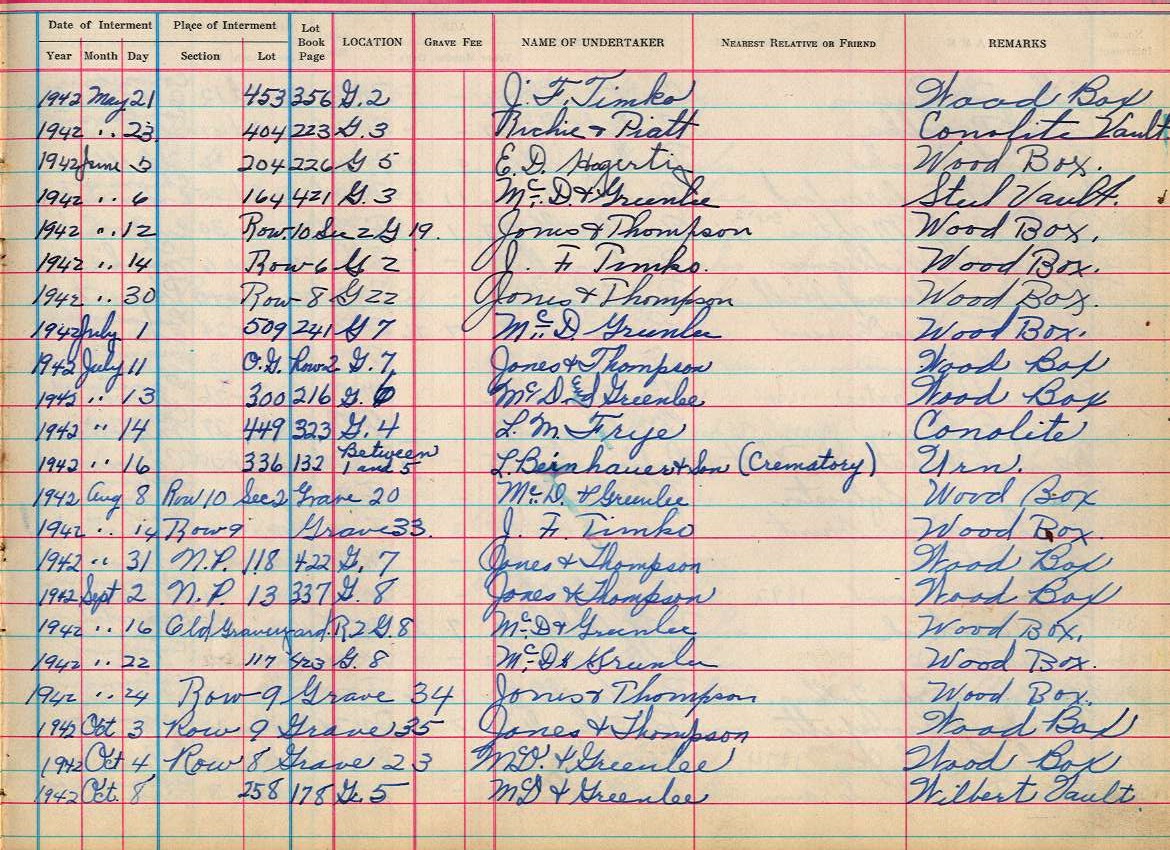 Date of Interment Place of Interment Lot Book Page LOCATION GRAVE FEE NAME OF UNDERTAKER NEAREST RELATIVE OR FRIEND REMARKS
Year Month Day Section Lot
1942 May 21 453 356 G. 2 J. F. Timko Wood Box
1942 " 23. 404 223 G. 3 Richie & Piatt Conolite Vault
1942 June 5 204 226 G 5 E. D. Hagerty Wood Box.
1942 " 6 164 421 G. 3 Mc. D. & Greenlee Steel Vault.
1942 " 12 Row. 10 Sec 2 G 19. Jones & Thompson Wood Box.
1942 " 14 Row 6 G 2 J. F Timko. Wood Box.
1942 " 30 Row 8 G 22 Jones & Thompson Wood Box.
1942 July 1 509 241 G 7 Mc. D Greenlee Wood Box.
1942 July 11 O.G. Row 2 G. 7 Jones & Thompson Wood Box
1942 " 13 300 216 G. 6 Mc D. & Greenlee Wood Box
1942 " 14 449 323 G. 4 L. M. Frye Conolite
1942 " 16 336 132 Between 1 and 5 L. Beinhauer & Son (Crematory) Urn.
1942 Aug 8 Row 10 Sec 2 Grave 20 Mc. D. & Greenlee Wood Box
1942 " 14 Row 9 Grave 33. J. F. Timko Wood Box.
1942 " 31 N.P. 118 422 G. 7 Jones & Thompson Wood Box
1942 Sept 2 N.P. 13 337 G. 8 Jones & Thompson Wood Box
1942 " 16 Old Graveyard. R 2 G. 8 Mc. D & Greenlee Wood Box.
1942 " 22 117 423 G. 8 Mc. D & Greenlee Wood Box.
1942 " 24 Row 9 Grave 34 Jones & Thompson Wood Box.
1942 Oct 3 Row 9 Grave 35 Jones & Thompson Wood Box
1942 Oct 4 Row 8 Grave 23 McD. & Greenlee Wood Box
1942 Oct. 8 258 178 G. 5 McD & Greenlee Wilbert Vault